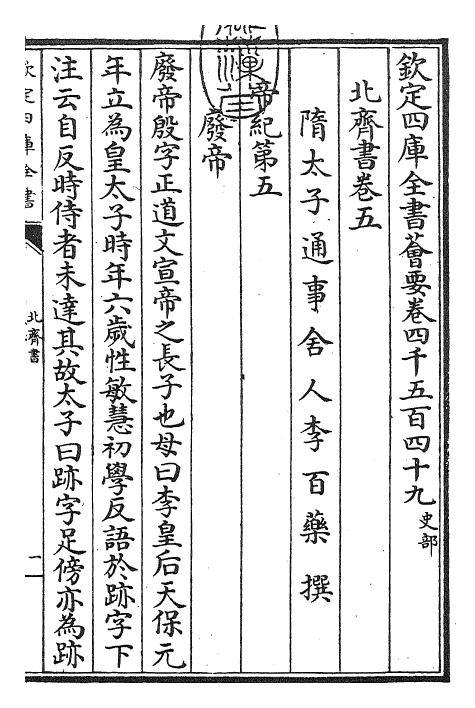 欽定四庫全書薈要卷四千五百四十九 史部
北齊書卷五
隋太子通事舍人李百藥撰
帝紀第五
廢帝
廢帝殷字正道文宣帝之長子也母曰李皇后天保元
年立為皇太子時年六歲性敏慧初學反語於跡字下
注云自反時侍者未達其故太子曰跡字足傍亦為跡
欽定四庫全書
北齊書